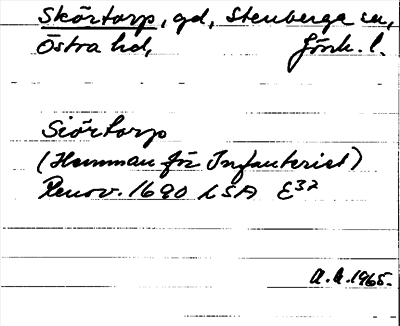 Skörtorp, gd, Stenberga sn,
Östra hd, Jönk. l.
Siörtorp
(Hemman för Infanterist)
Renov. 1690 LSA E32
A.A. 1965.